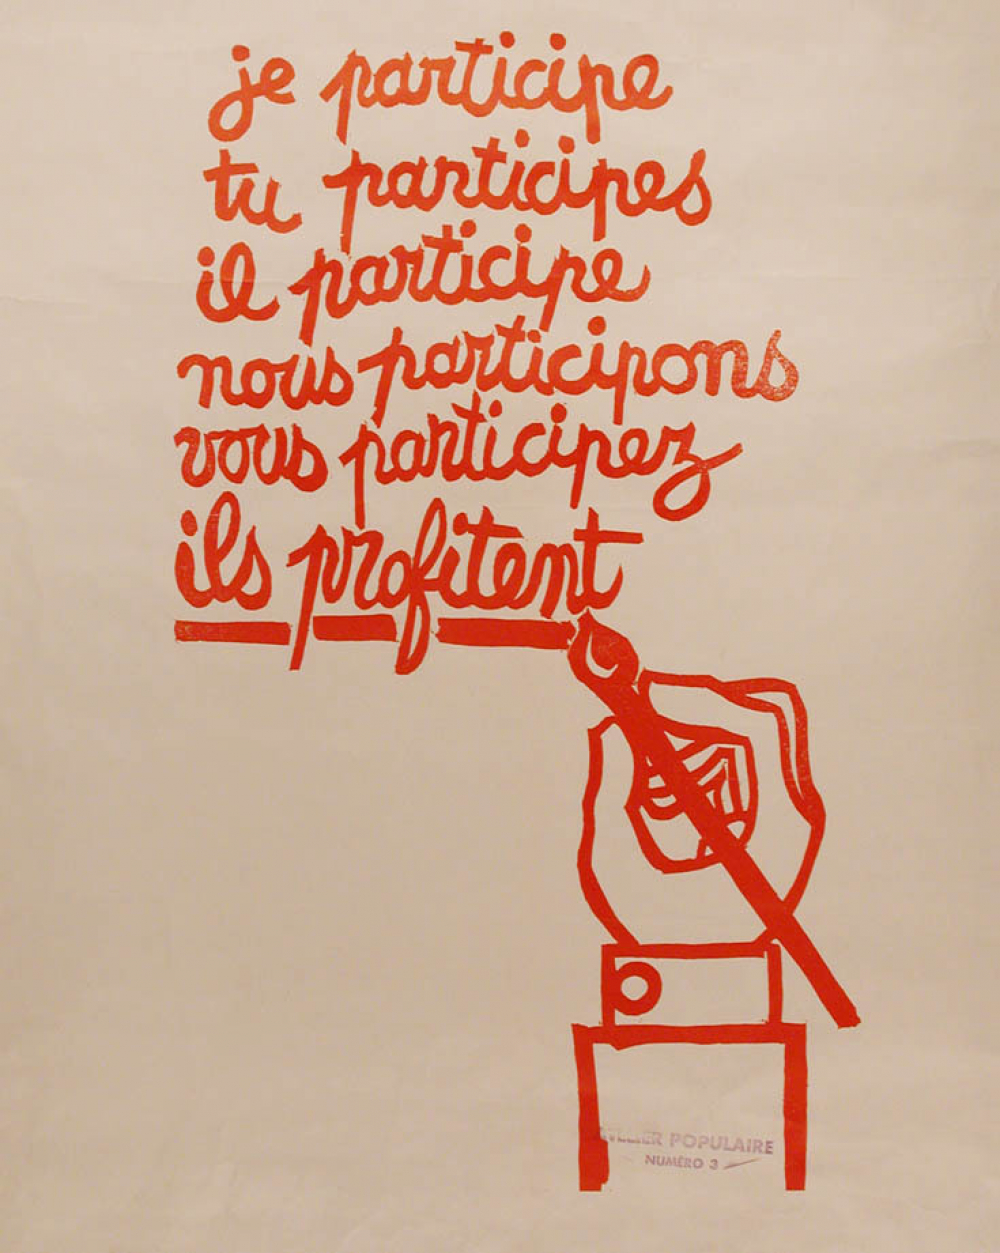 je participe
tu participes
il participe
nous participons
vous participez
ils profitent
ATELIER POPULAIRE
NUMÉRO 3